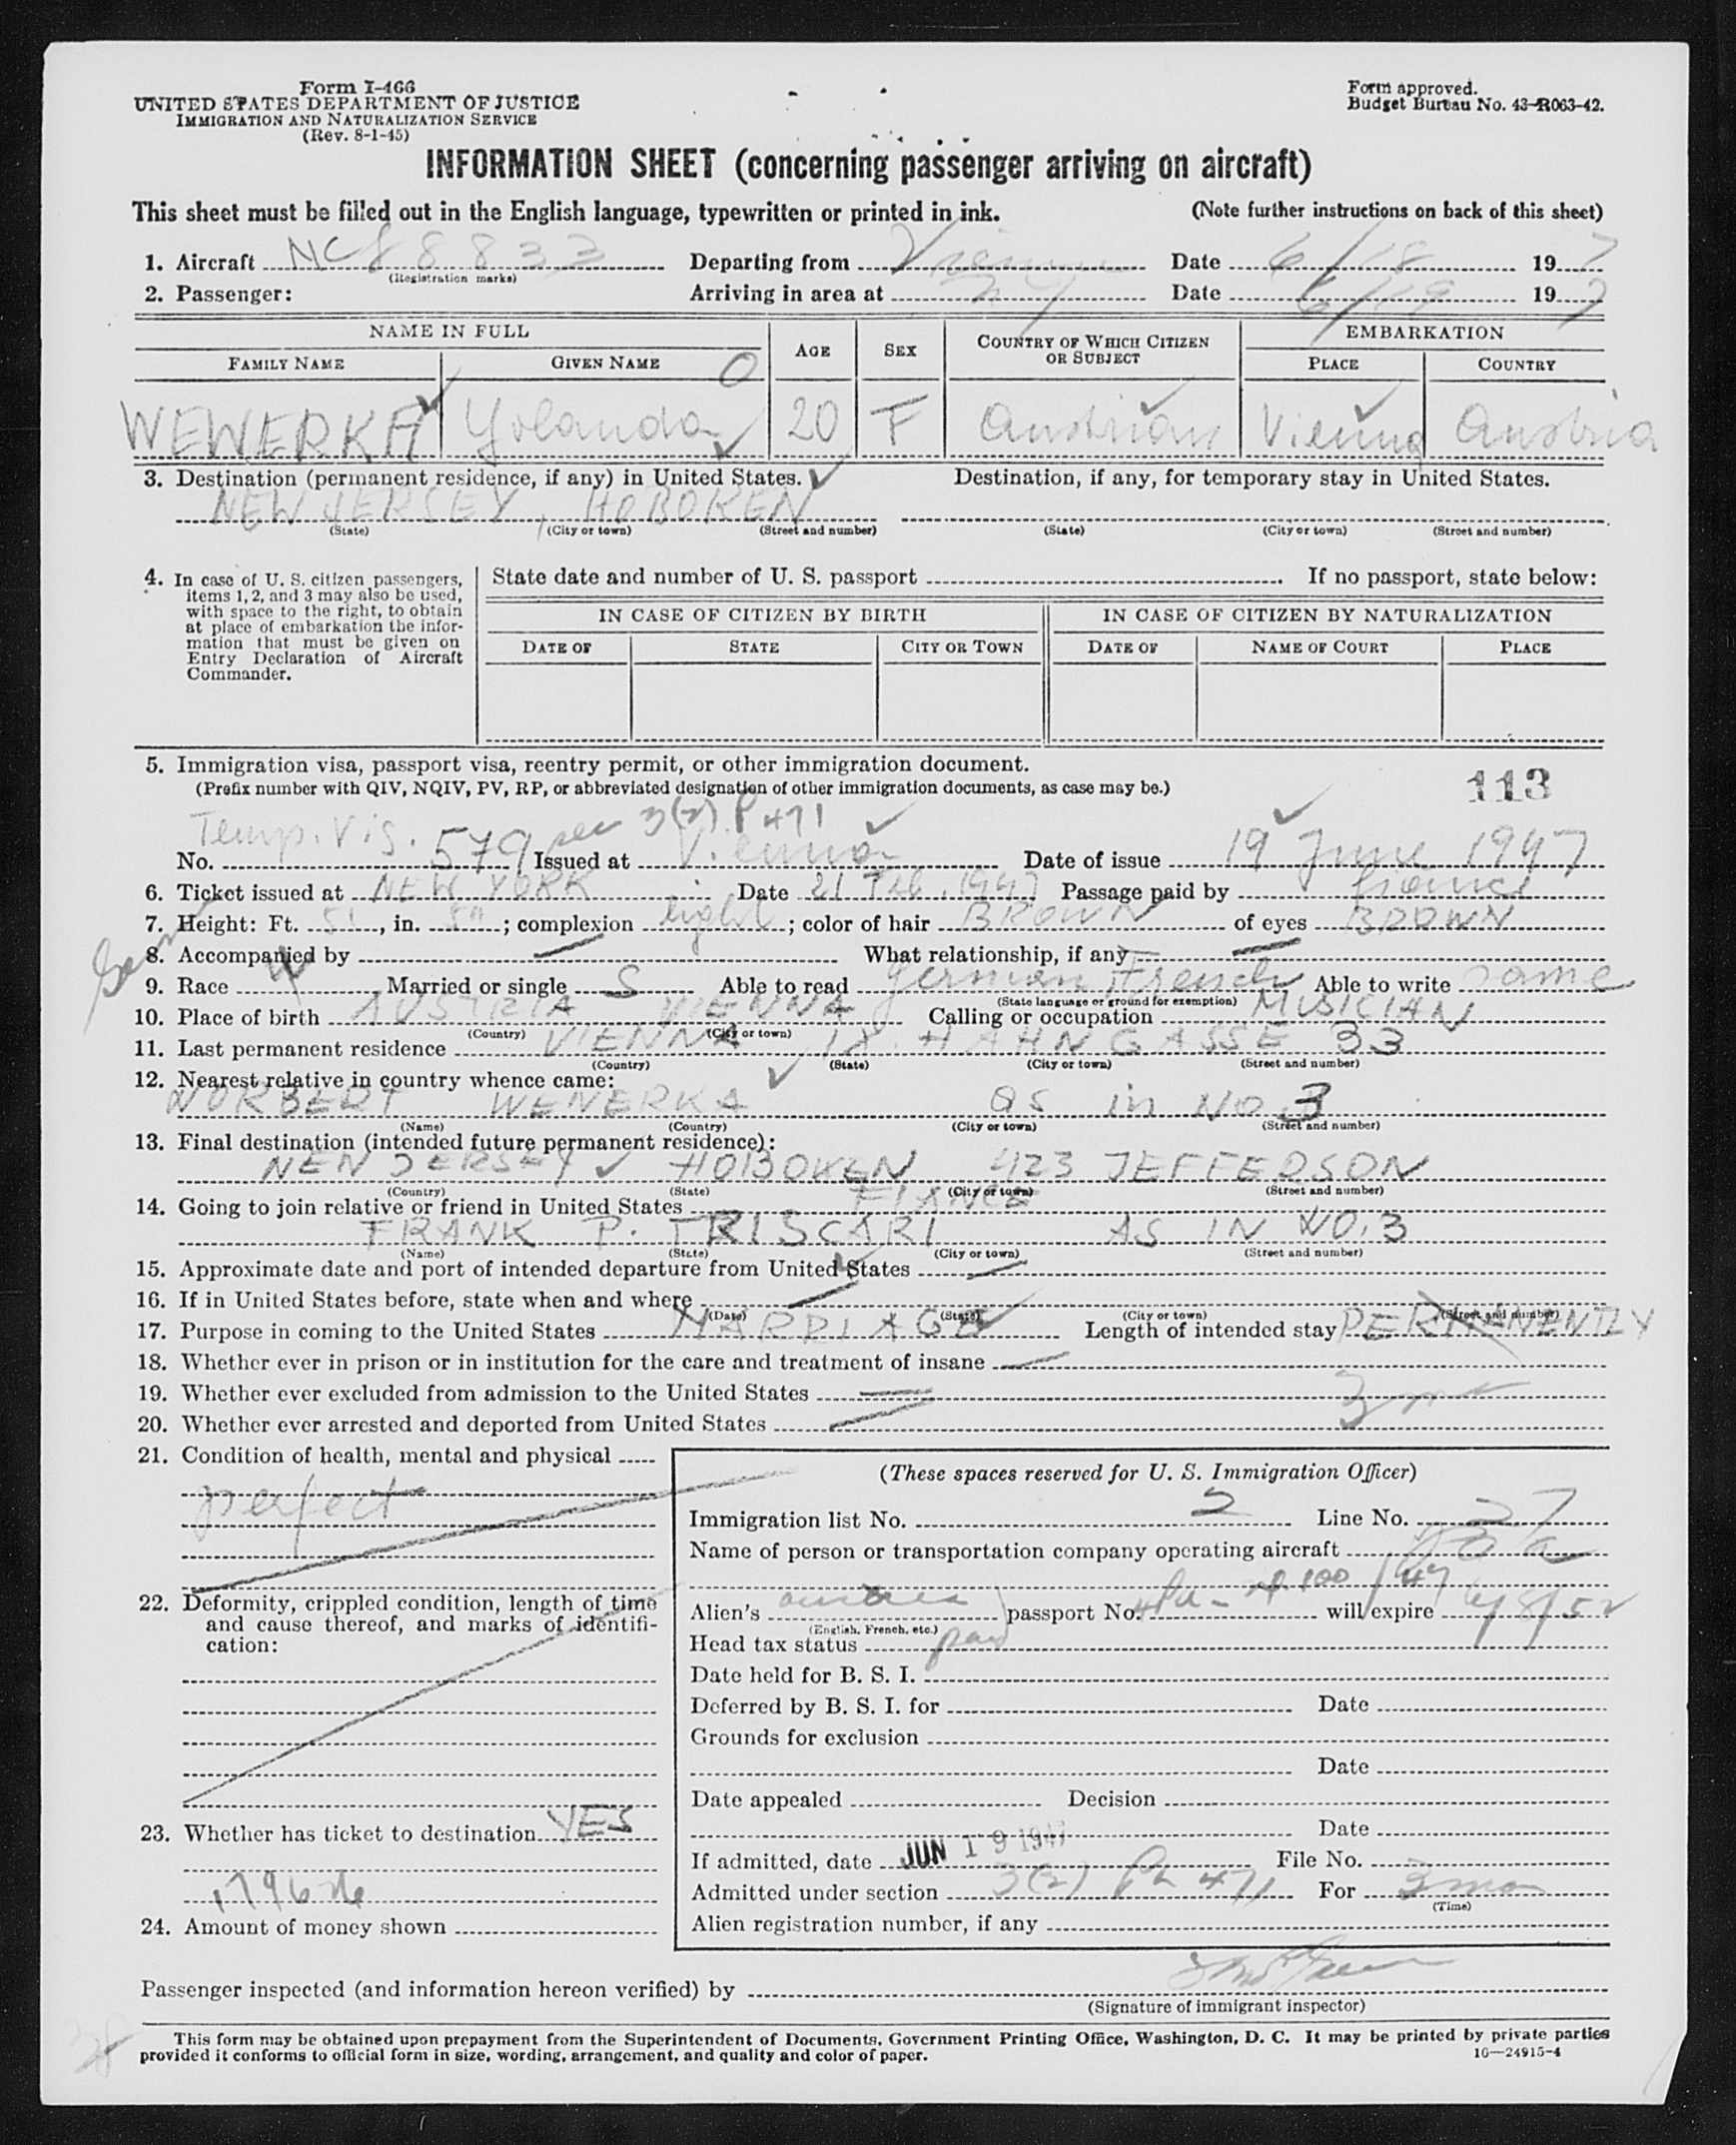 Form I-466
UNITED STATES DEPARTMENT OF JUSTICE
IMMIGRATION AND NATURALIZATION SERVICE
(Rev. 8-1-45)
Form approved.
Budget Bureau No. 43-R063-42.
INFORMATION SHEET (concerning passenger arriving on aircraft)
This sheet must be filled out in the English language, typewritten or printed in ink. (Note further instructions on back of this sheet)
1. Aircraft NC 88833 Departing from Vienna Date 6/18 197
(Registration marks)
2. Passenger: Arriving in area at NY Date 6/19 197
NAME IN FULL AGE SEX COUNTRY OF WHICH CITIZEN OR SUBJECT EMBARKATION
FAMILY NAME GIVEN NAME PLACE COUNTRY
WEWERKA Yolanda 20 F Austrian Vienna Austria
3. Destination (permanent residence, if any) in United States. Destination, if any, for temporary stay in United States.
NEW JERSEY, HOBOKEN
(State) (City or town) (Street and number) (State) (City or town) (Street and number)
4. In case of U. S. citizen passengers, items 1, 2, and 3 may also be used, with space to the right, to obtain at place of embarkation the information that must be given on Entry Declaration of Aircraft Commander.
State date and number of U. S. passport If no passport, state below:
IN CASE OF CITIZEN BY BIRTH IN CASE OF CITIZEN BY NATURALIZATION
DATE OF STATE CITY OR TOWN DATE OF NAME OF COURT PLACE
5. Immigration visa, passport visa, reentry permit, or other immigration document.
(Prefix number with QIV, NQIV, PV, RP, or abbreviated designation of other immigration documents, as case may be.) 113
Temp. Vis. per 3(2) P 471
No. 579 Issued at Vienna Date of issue 19 June 1947
6. Ticket issued at NEW YORK Date 21 Feb. 1947 Passage paid by fiance
7. Height: Ft. 5', in. 5"; complexion light; color of hair BROWN of eyes BROWN
8. Accompanied by — What relationship, if any —
9. Race W Married or single S Able to read German, French Able to write same
(State language or ground for exemption)
10. Place of birth AUSTRIA VIENNA Calling or occupation MUSICIAN
(Country) (City or town)
11. Last permanent residence VIENNA 18. HAHNGASSE 33
(Country) (State) (City or town) (Street and number)
12. Nearest relative in country whence came:
NORBERT WEWERKA as in No 3
(Name) (Country) (City or town) (Street and number)
13. Final destination (intended future permanent residence):
NEW JERSEY HOBOKEN 423 JEFFERSON
(Country) (State) (City or town) (Street and number)
14. Going to join relative or friend in United States FIANCE
FRANK P. TRISCARI AS IN NO. 3
(Name) (State) (City or town) (Street and number)
15. Approximate date and port of intended departure from United States —
16. If in United States before, state when and where —
(Date) (State) (City or town) (Street and number)
17. Purpose in coming to the United States MARRIAGE Length of intended stay PERMANENTLY
18. Whether ever in prison or in institution for the care and treatment of insane —
19. Whether ever excluded from admission to the United States —
3 m
20. Whether ever arrested and deported from United States —
21. Condition of health, mental and physical
perfect
22. Deformity, crippled condition, length of time and cause thereof, and marks of identification:
23. Whether has ticket to destination YES
24. Amount of money shown
(These spaces reserved for U. S. Immigration Officer)
Immigration list No. 2 Line No. 27
Name of person or transportation company operating aircraft
Alien's passport No. will expire 4/8/52
(English, French, etc.)
Head tax status paid
Date held for B. S. I.
Deferred by B. S. I. for Date
Grounds for exclusion
Date
Date appealed Decision
Date
If admitted, date JUN 19 1947 File No.
Admitted under section 3(2) PL 471 For 3 mos
(Time)
Alien registration number, if any
Passenger inspected (and information hereon verified) by
(Signature of immigrant inspector)
This form may be obtained upon prepayment from the Superintendent of Documents, Government Printing Office, Washington, D. C. It may be printed by private parties
provided it conforms to official form in size, wording, arrangement, and quality and color of paper. 16—24915-4